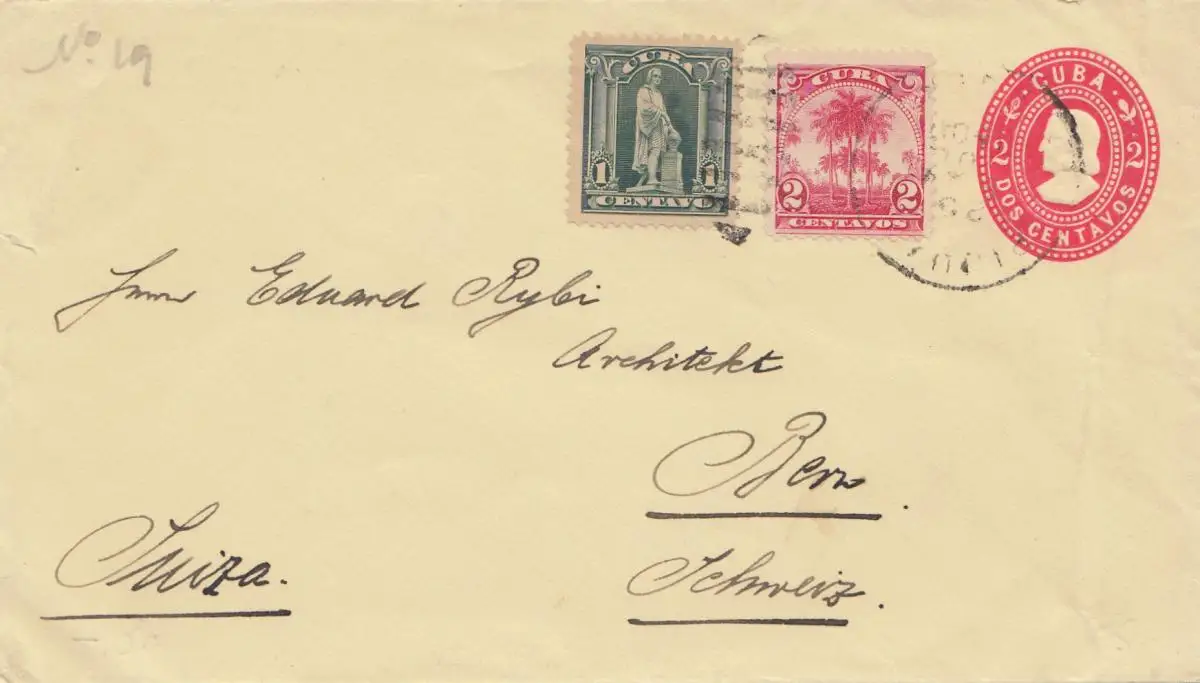 No. 19
CUBA
1 1
CENTAVO
CUBA
2 2
CENTAVOS
CUBA
2 2
DOS CENTAVOS
Herrn Eduard Rybi
Architekt
Bern.
Suiza.
Schweiz.